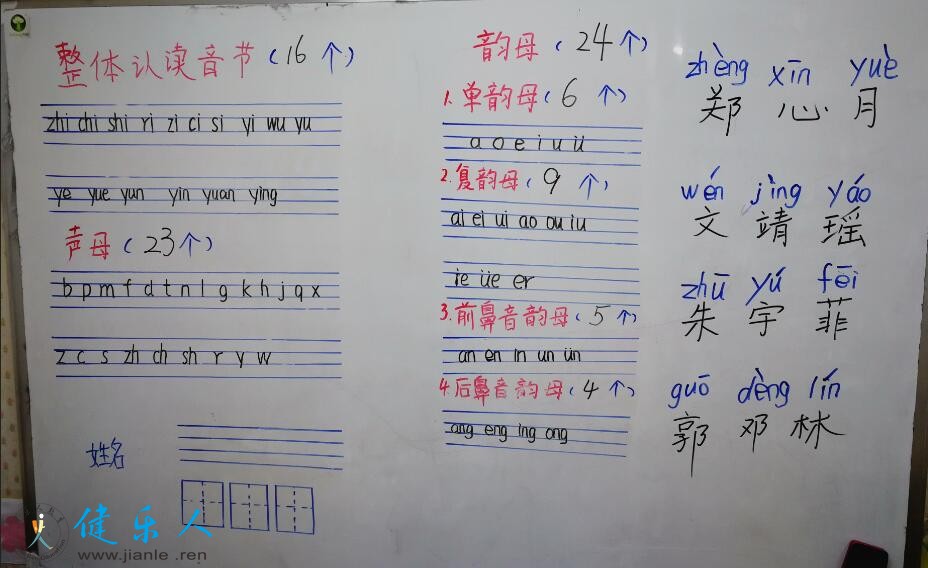 整体认读音节(16个)
zhi chi shi ri zi ci si yi wu yu
ye yue yun yin yuan ying
声母(23个)
b p m f d t n l g k h j q x
z c s zh ch sh r y w
姓名
韵母(24个)
1.单韵母(6个)
a o e i u ü
2.复韵母(9个)
ai ei ui ao ou iu
ie üe er
3.前鼻音韵母(5个)
an en in un ün
4.后鼻音韵母(4个)
ang eng ing ong
zhèng xīn yuè
郑心月
wén jìng yáo
文靖瑶
zhū yú fēi
朱宇菲
guō dèng lín
郭邓林
健乐人
www.jianle.ren